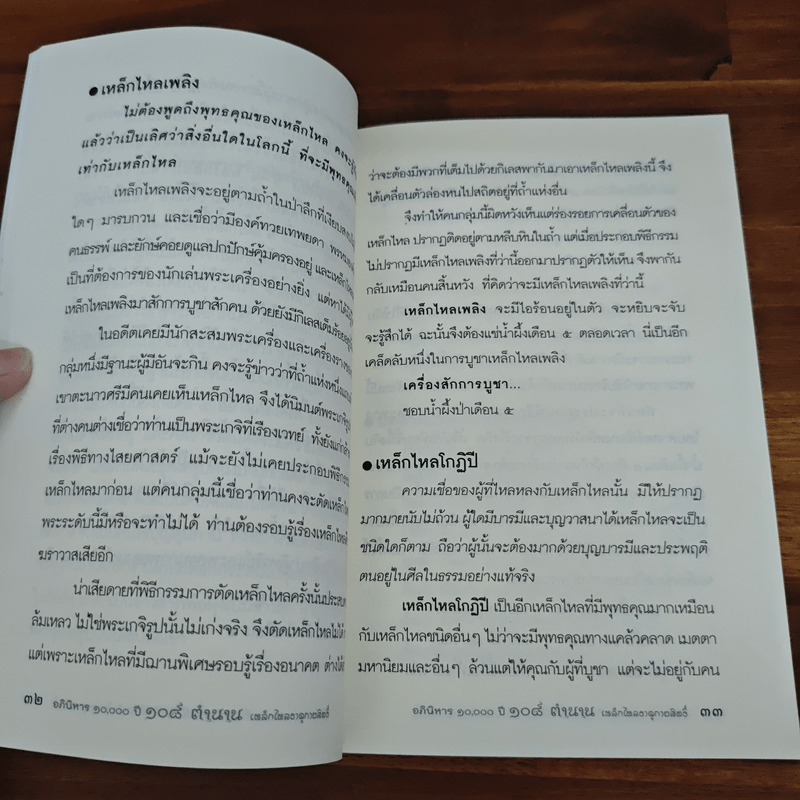 ● เหล็กไหลเพลิง
ไม่ต้องพูดถึงพุทธคุณของเหล็กไหล คงจะรู้
แล้วว่าเป็นเลิศว่าสิ่งอื่นใดในโลกนี้ ที่จะมีพุทธคุณ
เท่ากับเหล็กไหล
เหล็กไหลเพลิงจะอยู่ตามถ้ำในป่าลึกที่เงียบสงบ
ใดๆ มารบกวน และเชื่อว่ามีองค์ทวยเทพยดา
คนธรรพ์ และยักษ์คอยดูแลปกปักษ์คุ้มครองอยู่ และเหล็กไหล
เป็นที่ต้องการของนักเล่นพระเครื่องอย่างยิ่ง แต่หาได้มี
เหล็กไหลเพลิงมาสักการบูชาสักคน ด้วยยังมีกิเลสเต็มร้อย
ในอดีตเคยมีนักสะสมพระเครื่องและเครื่องราง
กลุ่มหนึ่งมีฐานะผู้มีอันจะกิน คงจะรู้ข่าวว่าที่ถ้ำแห่งหนึ่ง
เขาตะนาวศรีมีคนเคยเห็นเหล็กไหล จึงได้นิมนต์พระเกจิ
ที่ต่างคนต่างเชื่อว่าท่านเป็นพระเกจิที่เรืองเวทย์ ทั้งยัง
เรื่องพิธีทางไสยศาสตร์ แม้จะยังไม่เคยประกอบพิธีกรรม
เหล็กไหลมาก่อน แต่คนกลุ่มนี้เชื่อว่าท่านคงจะตัดเหล็กไหล
พระระดับนี้มีหรือจะทำไม่ได้ ท่านต้องรอบรู้เรื่องเหล็กไหล
ฆราวาสเสียอีก
น่าเสียดายที่พิธีกรรมการตัดเหล็กไหลครั้งนั้นประสบ
ล้มเหลว ไม่ใช่พระเกจิรูปนั้นไม่เก่งจริง จึงตัดเหล็กไหลไม่ได้
แต่เพราะเหล็กไหลที่มีฌานพิเศษรอบรู้เรื่องอนาคต ต่างได้
๓๒ อภินิหาร ๑๐,๐๐๐ ปี ๑๐๘ ตำนาน เหล็กไหลธาตุกายสิทธิ์
ว่าจะต้องมีพวกที่เต็มไปด้วยกิเลสพากันมาเอาเหล็กไหลเพลิงนี้ จึง
ได้เคลื่อนตัวล่องหนไปสถิตอยู่ที่ถ้ำแห่งอื่น
จึงทำให้คนกลุ่มนี้ผิดหวังเห็นแต่ร่องรอยการเคลื่อนตัวของ
เหล็กไหล ปรากฏติดอยู่ตามหลืบหินในถ้ำ แต่เมื่อประกอบพิธีกรรม
ไม่ปรากฏมีเหล็กไหลเพลิงที่ว่านี้ออกมาปรากฏตัวให้เห็น จึงพากัน
กลับเหมือนคนสิ้นหวัง ที่คิดว่าจะมีเหล็กไหลเพลิงที่ว่านี้
เหล็กไหลเพลิง จะมีไอร้อนอยู่ในตัว จะหยิบจะจับ
จะรู้สึกได้ ฉะนั้นจึงต้องแช่น้ำผึ้งเดือน ๕ ตลอดเวลา นี่เป็นอีก
เคล็ดลับหนึ่งในการบูชาเหล็กไหลเพลิง
เครื่องสักการบูชา...
ชอบน้ำผึ้งป่าเดือน ๕
● เหล็กไหลโกฏิปี
ความเชื่อของผู้ที่ไหลหลงกับเหล็กไหลนั้น มีให้ปรากฏ
มากมายนับไม่ถ้วน ผู้ใดมีบารมีและบุญวาสนาได้เหล็กไหลจะเป็น
ชนิดใดก็ตาม ถือว่าผู้นั้นจะต้องมากด้วยบุญบารมีและประพฤติ
ตนอยู่ในศีลในธรรมอย่างแท้จริง
เหล็กไหลโกฏิปี เป็นอีกเหล็กไหลที่มีพุทธคุณมากเหมือน
กับเหล็กไหลชนิดอื่นๆ ไม่ว่าจะมีพุทธคุณทางแคล้วคลาด เมตตา
มหานิยมและอื่นๆ ล้วนแต่ให้คุณกับผู้ที่บูชา แต่จะไม่อยู่กับคน
อภินิหาร ๑๐,๐๐๐ ปี ๑๐๘ ตำนาน เหล็กไหลธาตุกายสิทธิ์ ๓๓